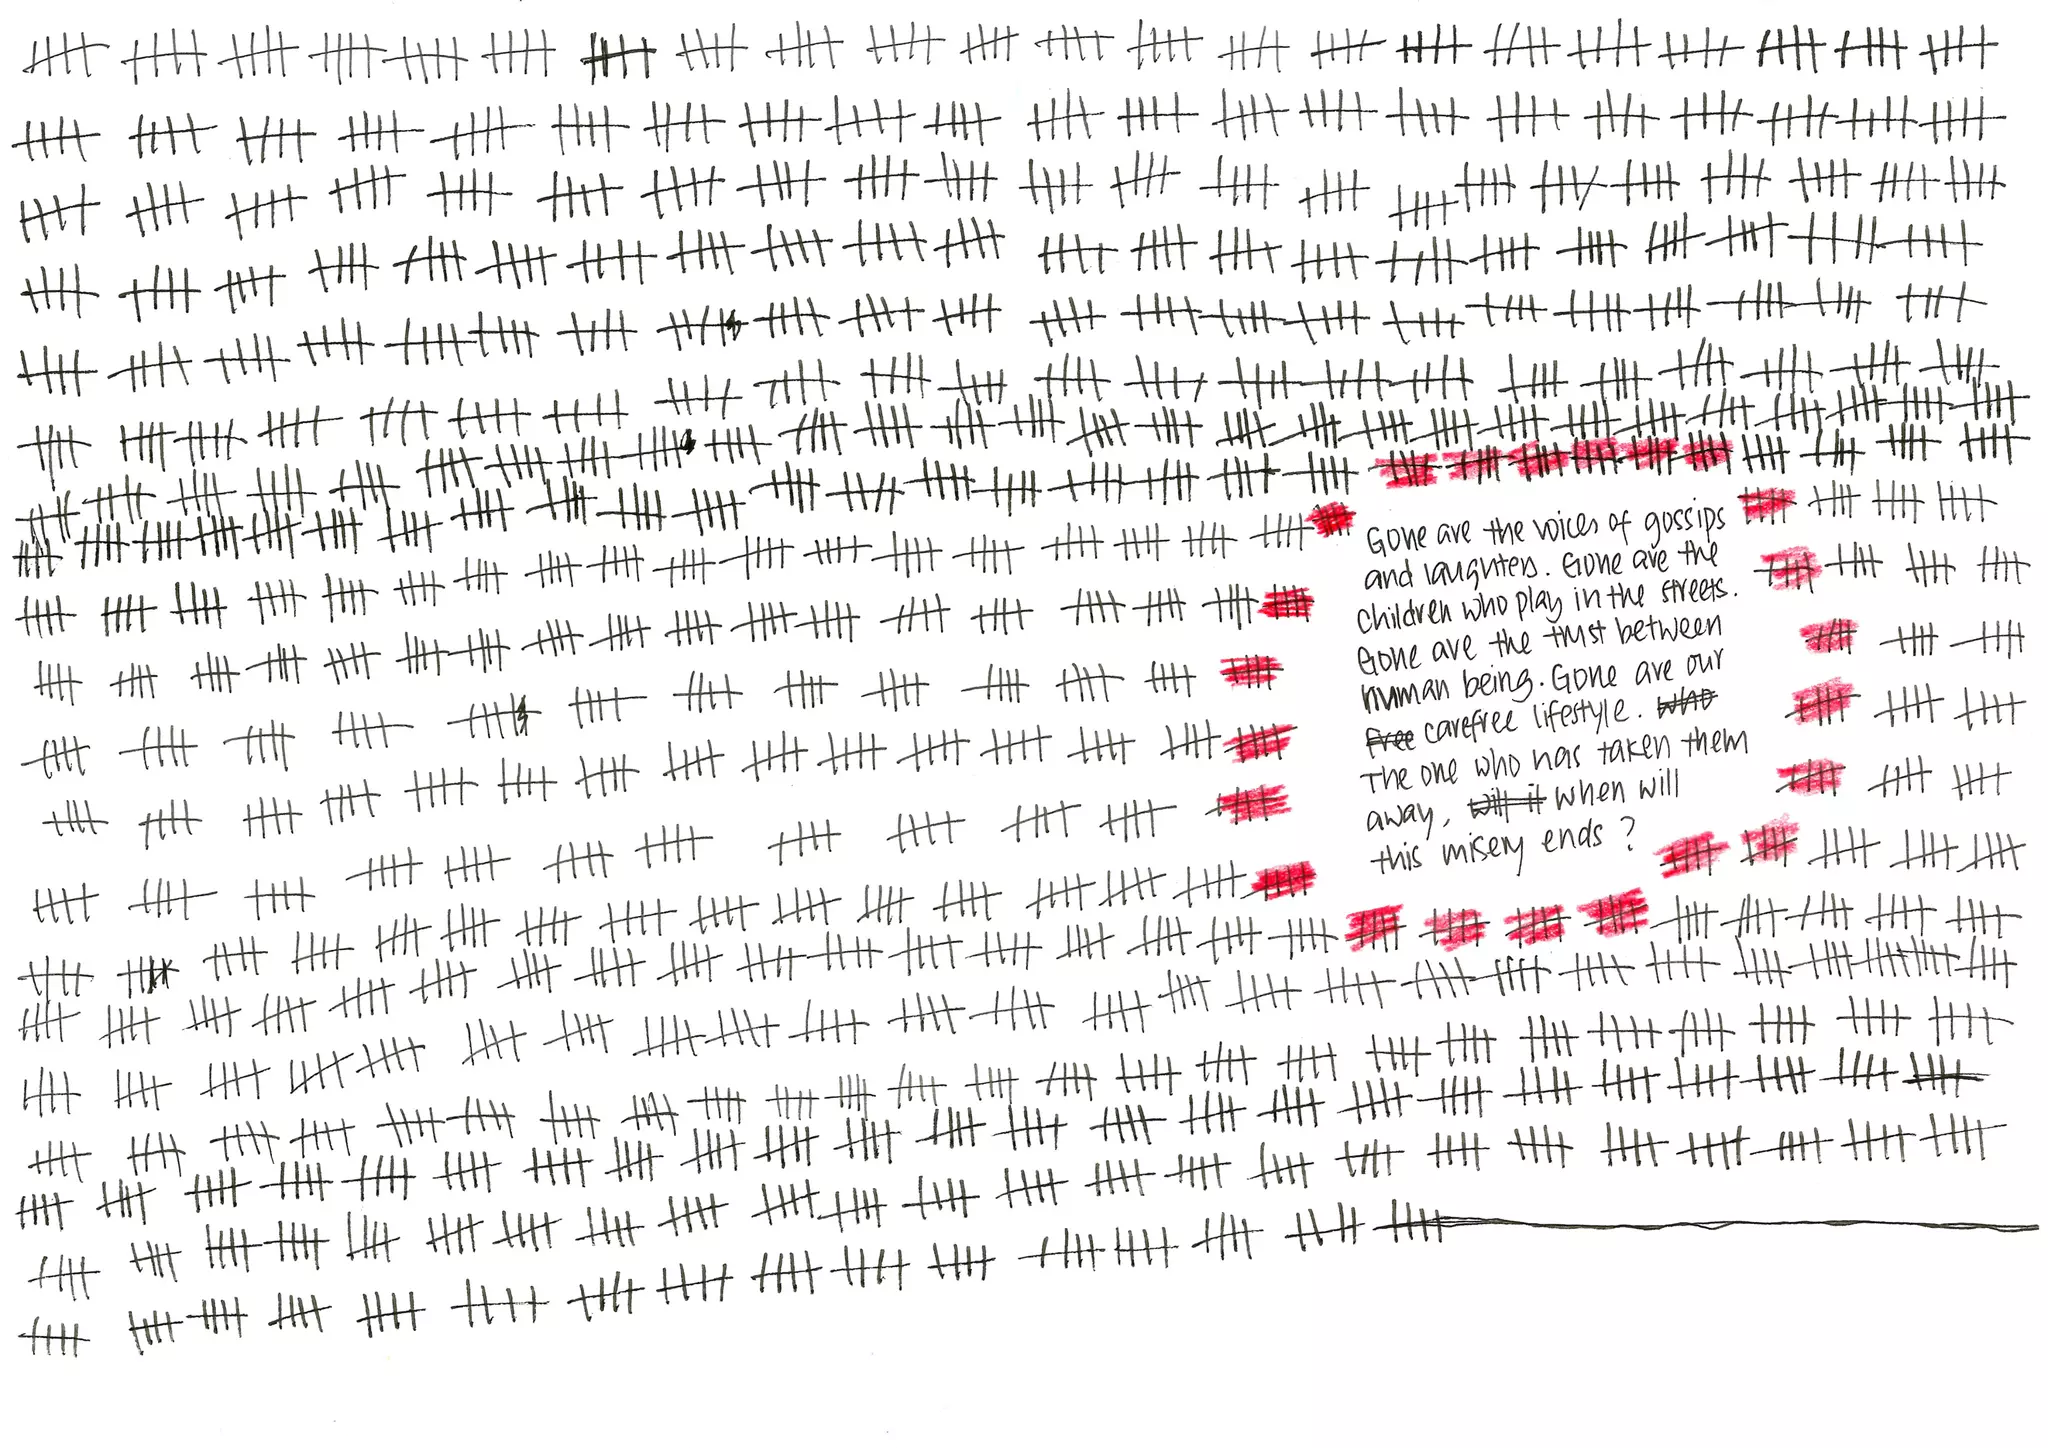 Gone are the voices of gossips
and laughters. Gone are the
children who play in the streets.
Gone are the trust between
human being. Gone are our
free carefree lifestyle. who
The one who has taken them
away, will it when will
this misery ends?